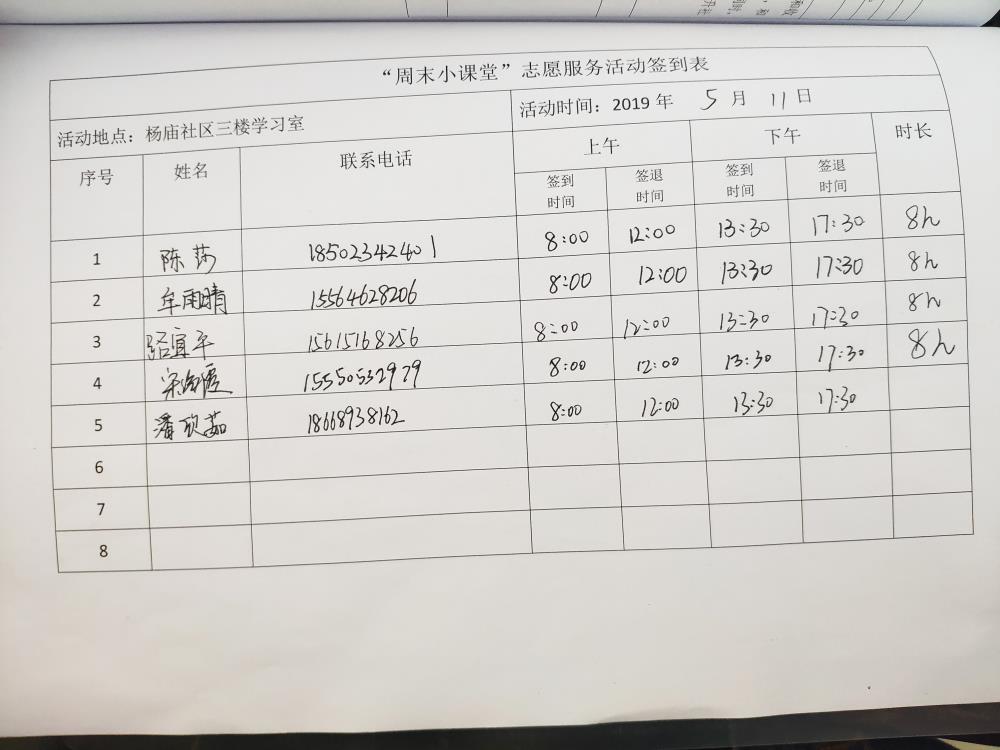 “周末小课堂”志愿服务活动签到表
活动地点：杨庙社区三楼学习室 活动时间：2019 年 5 月 11 日
序号 姓名 联系电话 上午 下午 时长
签到时间 签退时间 签到时间 签退时间
1 陈莎 18502342401 8:00 12:00 13:30 17:30 8h
2 牟雨晴 15564628206 8:00 12:00 13:30 17:30 8h
3 宜平 15615168256 8:00 12:00 13:30 17:30 8h
4 宋 15550532979 8:00 12:00 13:30 17:30 8h
5 潘欣茹 18668938162 8:00 12:00 13:30 17:30
6
7
8